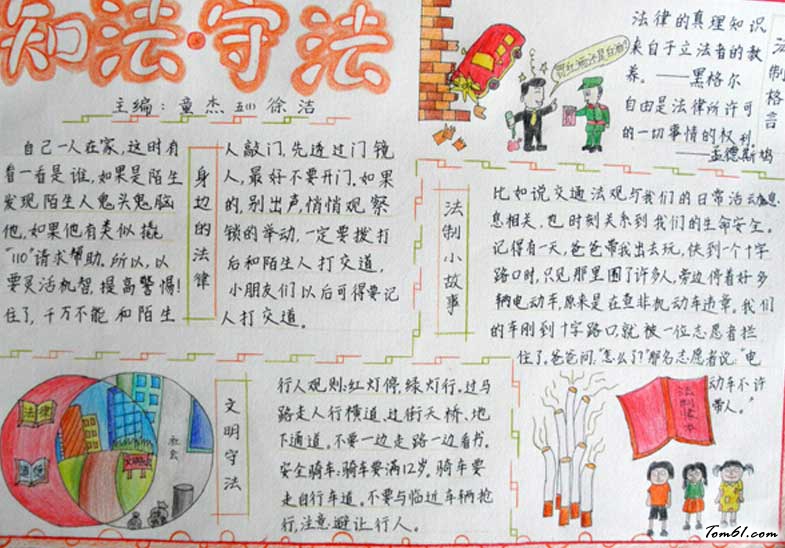 知法·守法
主编:童杰 五(1) 徐洁
身边的法律
自己一人在家,这时有人敲门,先透过门镜
看一看是谁,如果是陌生人,最好不要开门。如果
发现陌生人鬼头鬼脑的,别出声,悄悄观察
他,如果他有类似撬锁的举动,一定要拨打
"110"请求帮助。所以,以后和陌生人打交道,
要灵活机智提高警惕!小朋友们以后可得要记
住了,千万不能和陌生人打交道。
法制格言
法律的真理知识
来自于立法者的教
养。——黑格尔
自由是法律所许可
的一切事情的权利
——孟德斯鸠
法制小故事
比如说交通法观与我们的日常活动息
息相关,也时刻关系到我们的生命安全。
记得有一天,爸爸带我出去玩,快到一个十字
路口时,只见那里围了许多人,旁边停着好多
辆电动车,原来是在查非机动车违章。我们
的车刚到十字路口就被一位志愿者拦
住了,爸爸问,"怎么了?"那名志愿者说:"电
动车不许
带人。"
法律
道德
社会
文明守法
行人观则:红灯停,绿灯行。过马
路走人行横道、过街天桥、地
下通道。不要一边走路一边看书。
安全骑车:骑车要满12岁。骑车要
走自行车道。不要与临近车辆抢
行,注意避让行人。
Tom61.com